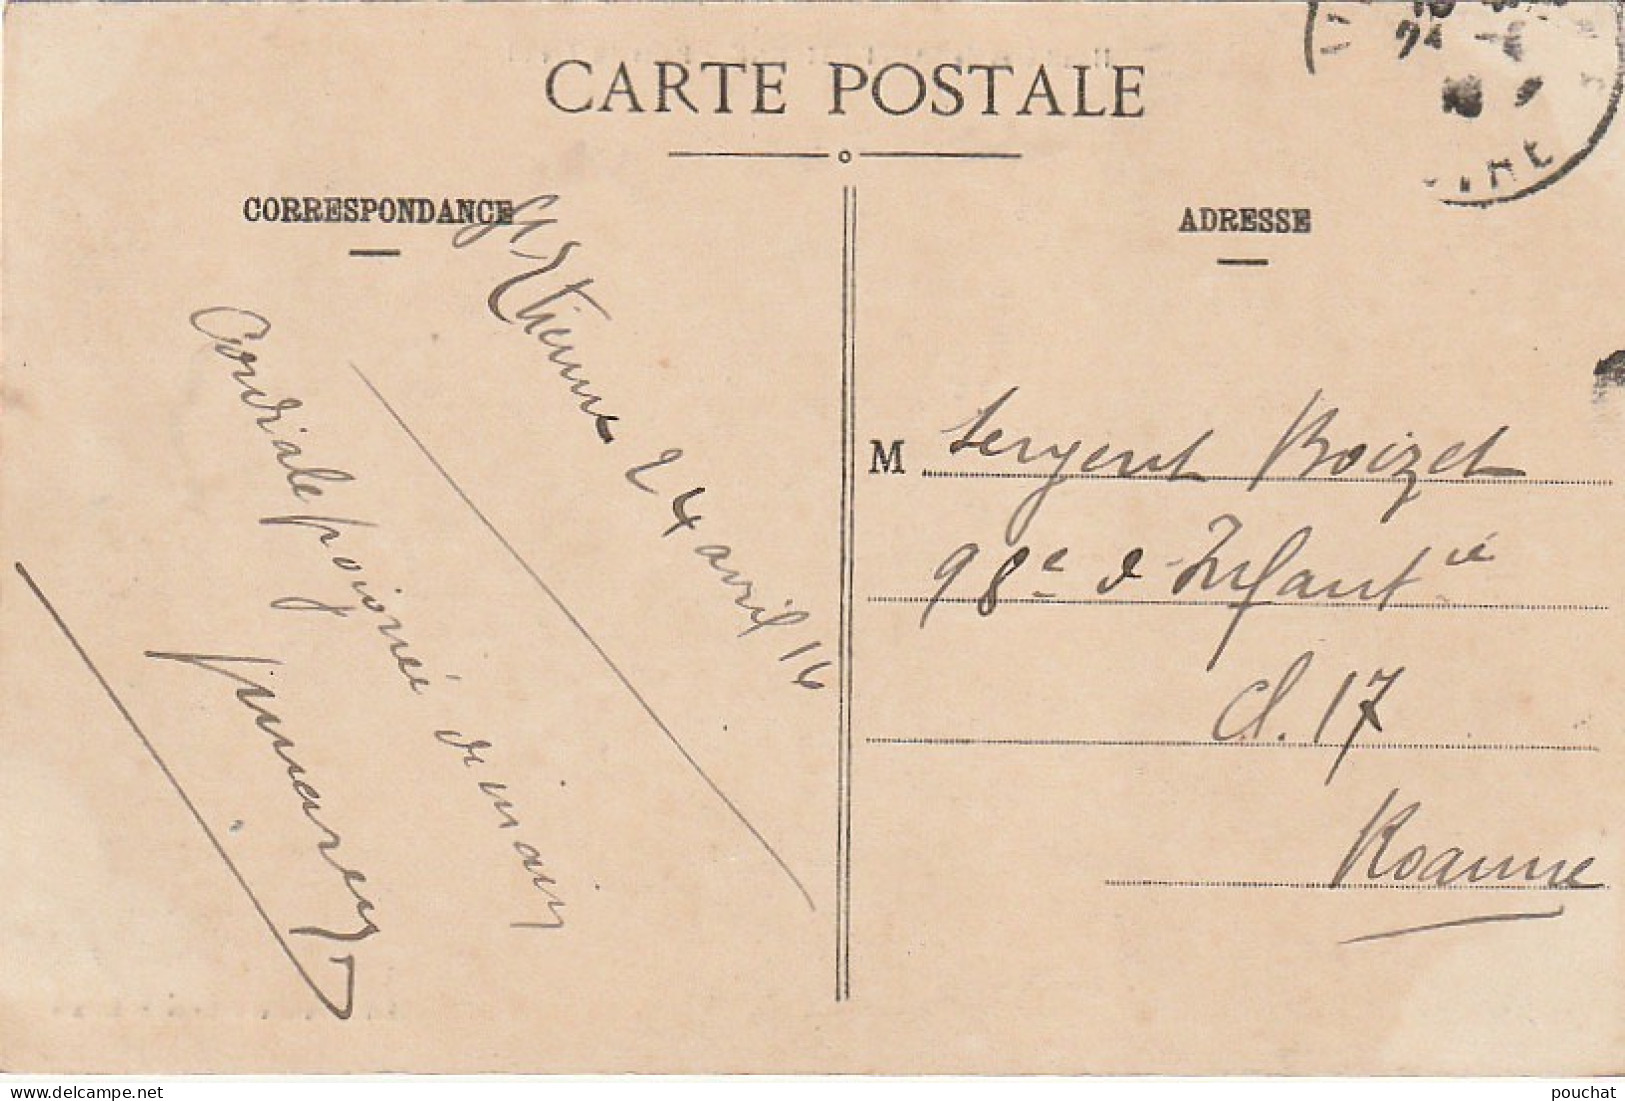 CARTE POSTALE
CORRESPONDANCE
ADRESSE
St Etienne 24 avril 16
Cordiale poignée de main
M Sergent Boizet
98e d'Infantie
Cl. 17
Roanne
delcampe.net
pouchat